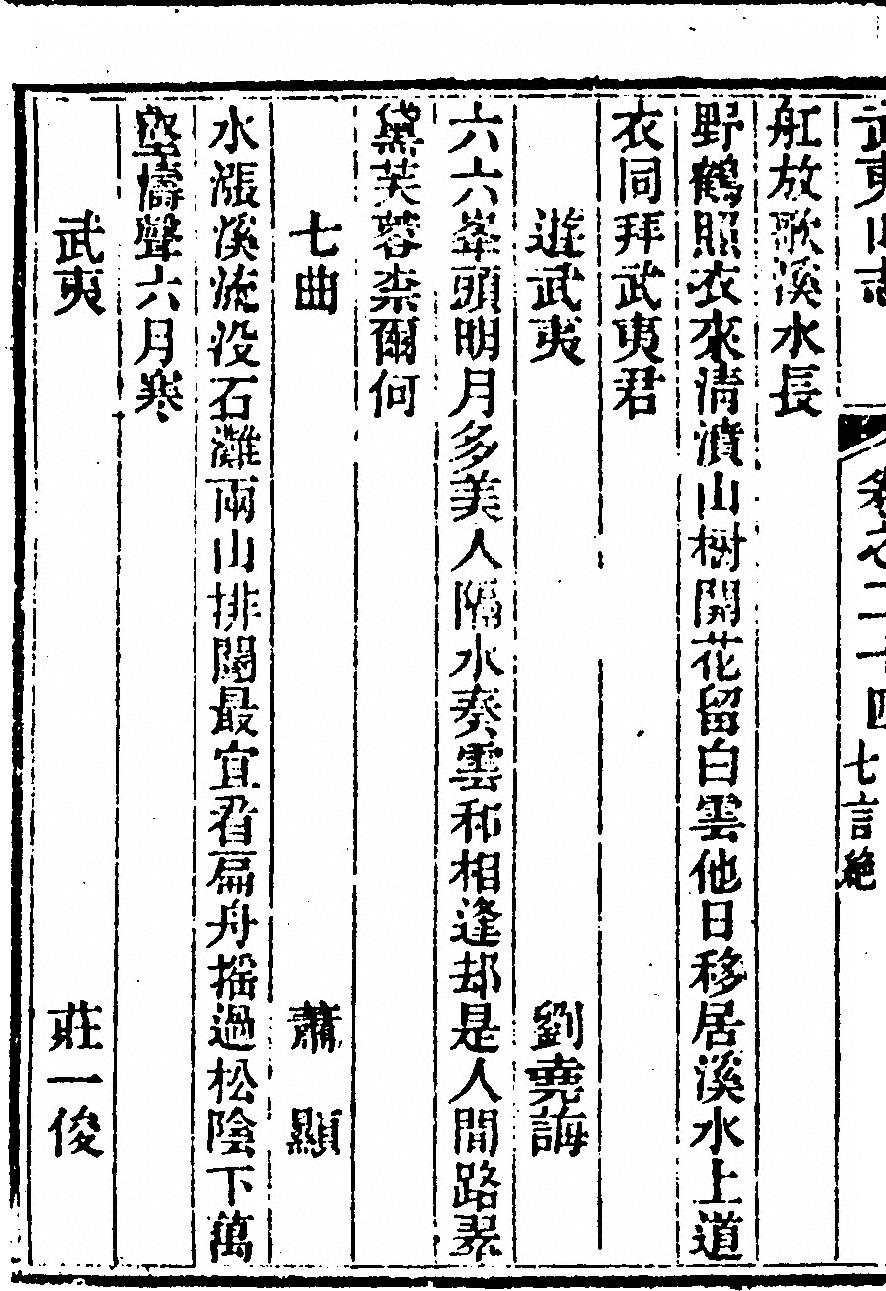 武夷山志 卷之二十四 七言絶
舡放歌溪水長
野鶴照衣來清濆山樹開花留白雲他日移居溪水上道
衣同拜武夷君
遊武夷 劉堯誨
六六峯頭明月多美人隔水奏雲和相逢却是人間路翠
黛芙蓉柰爾何
七曲 蕭顯
水漲溪流没石灘兩山排闥最宜看扁舟搖過松陰下萬
壑濤聲六月寒
武夷 莊一俊